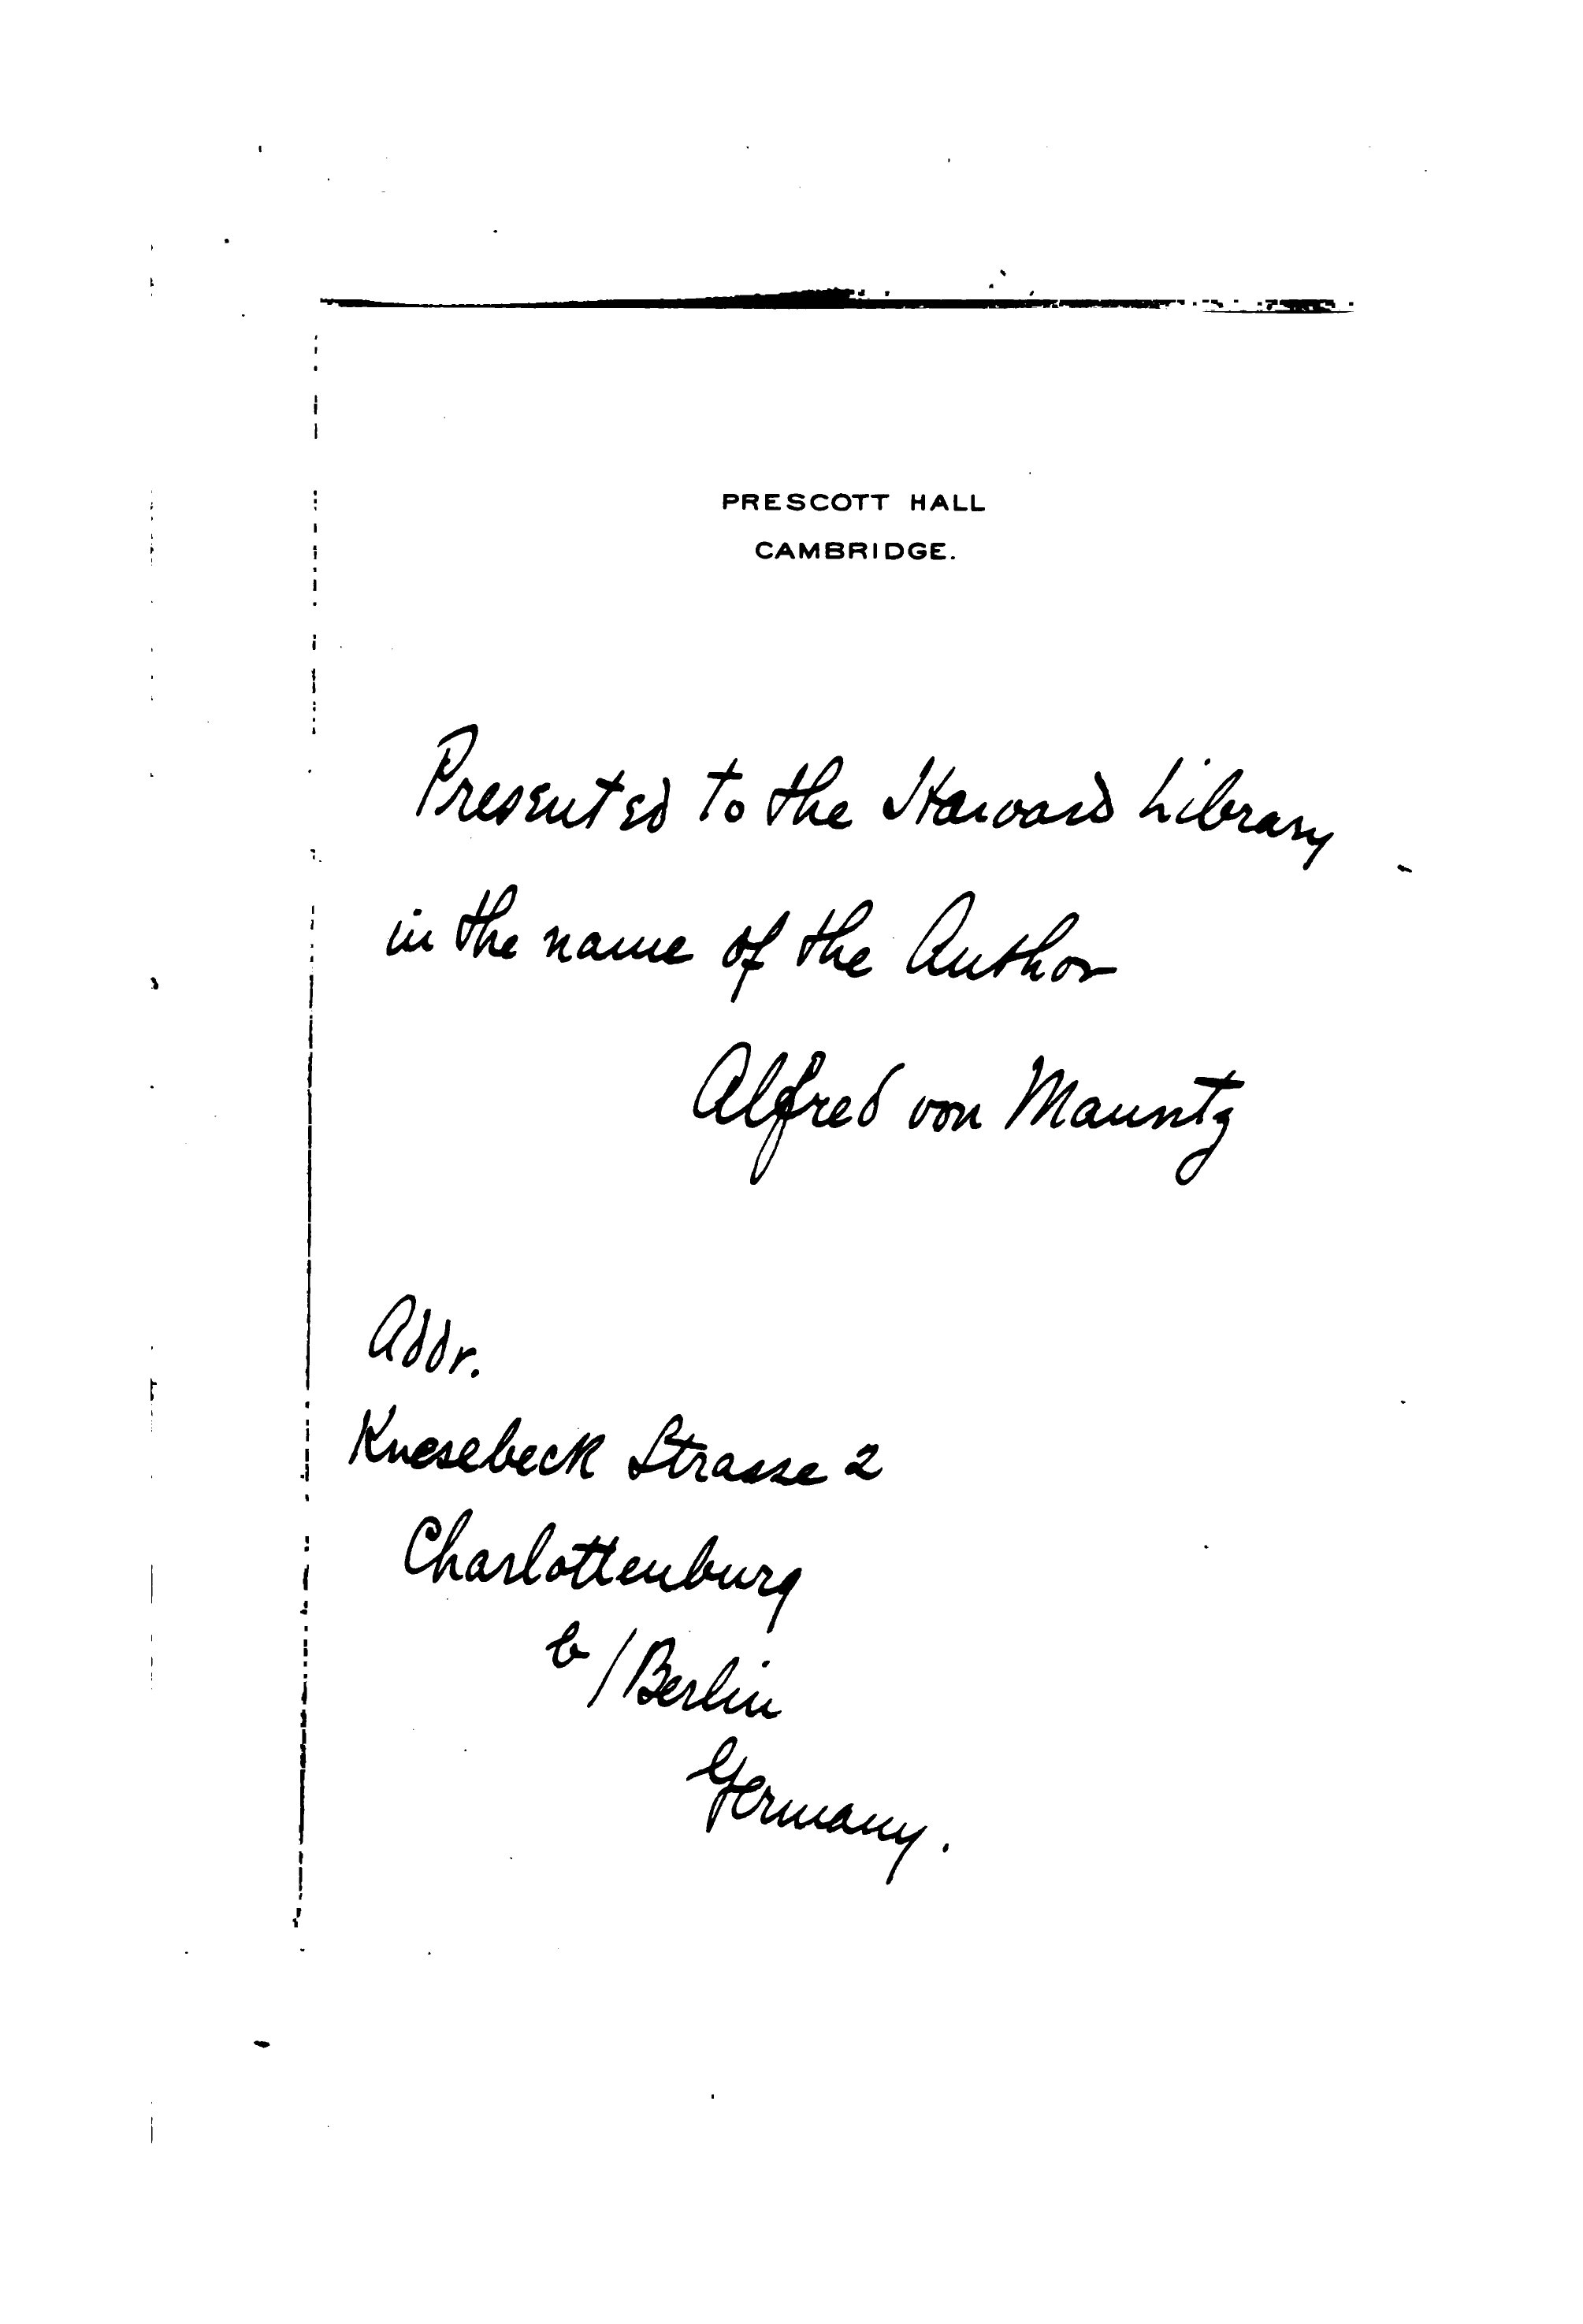 PRESCOTT HALL
CAMBRIDGE.
Presented to the Harvard Library
in the name of the Author
Alfred von Mauntz
Addr.
Knesebeck Strasse 2
Charlottenburg
b/Berlin
Germany.